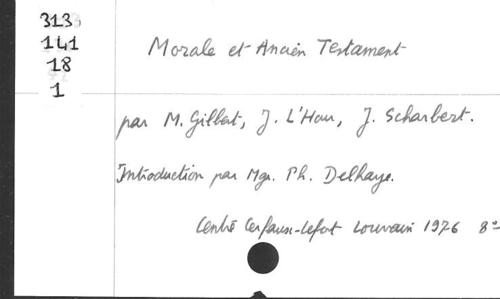 313
141
18
1
Morale et Ancien Testament
par M. Gilbert, J. L'Hour, J. Scharbert.
Introduction par Mgr. Ph. Delhaye.
Centre Cerfaux-Lefort Louvain 1976 8°